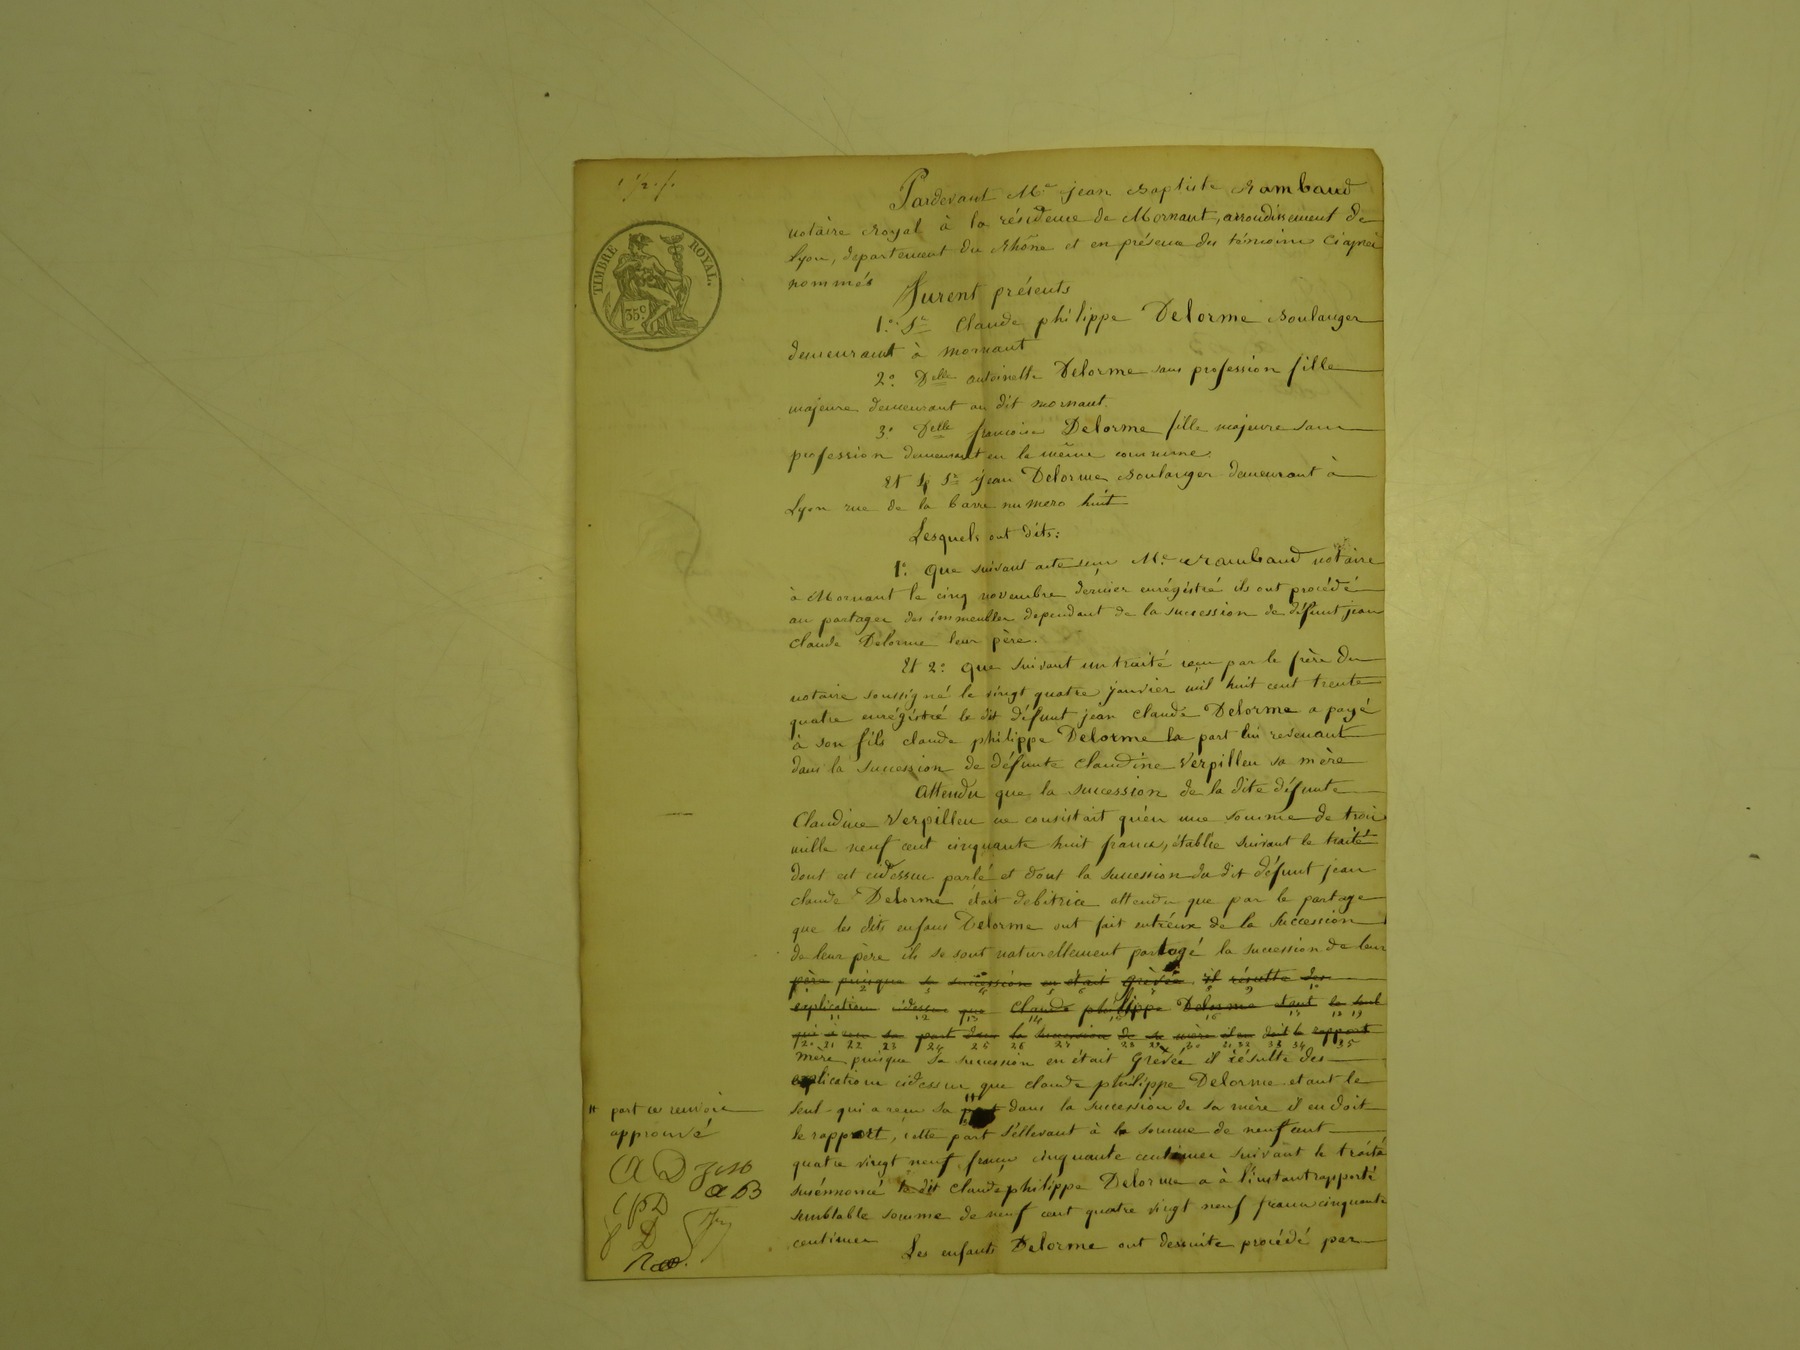 TIMBRE ROYAL.
35c
Pardevant Me jean Baptiste Rambaud
notaire Royal à la résidence de Mornant, arrondissement de
Lyon, département du Rhône et en présence des témoins ciaprès
nommés
Furent présents
1o. Sr Claude philippe Delorme Boulanger
demeurant à mornant
2o. Delle antoinette Delorme sans profession fille
majeure demeurant au dit mornant
3o. Delle francoise Delorme fille majeure sans
profession demeurant en la même commune.
Et 4o Sr jean Delorme Boulanger demeurant à
Lyon rue de la barre numero huit
Lesquels ont dits:
1o. que suivant acte reçu Me Rambaud notaire
à Mornant le cinq novembre dernier enrégistré ils ont procédé
au partage des immeubles dependant de la succession de défunt jean
claude Delorme leur père.
Et 2o. que suivant un traité reçu par le frère du
notaire soussigné le vingt quatre janvier mil huit cent trente
quatre enrégistré le dit défunt jean claude Delorme a payé
à son fils claude philippe Delorme la part lui revenant
dans la succession de défunte claudine Verpilleu sa mère
Attendu que la succession de la dite défunte
Claudine Verpilleu ne consistait qu'en une somme de trois
mille neuf cent cinquante huit francs, établie suivant le traité
dont est cidessus parlé et dont la succession du dit défunt jean
claude Delorme était debitrice attendu que par le partage
que les dits enfans Delorme ont fait entréux de la succession
de leur père ils se sont naturellement partagé la succession de leur
père puisque sa succession en était grèvée il résulte des
1 2 3 4 5 6 7 8 9 10
explications cidessus que Claude philippe Delorme etant le seul
11 12 13 14 15 16 17 18 19
qui a reçu sa part dans la succession de sa mère il en doit le rapport
20 21 22 23 24 25 26 27 28 29 30 31 32 33 34 35
mère puisque sa succession en était grevée il résulte des
explications cidessus que claude philippe Delorme etant le
seul qui a reçu sa dans la succession de sa mère il en doit
le rapport, cette part s'éllevant à la somme de neuf cent
quatre vingt neuf francs cinquante centimes suivant le traité
susénnoncé le dit claude philippe Delorme a à l'instant rapporté
semblable somme de neuf cent quatre vingt neuf francs cinquante
centimes
Les enfants Delorme ont dessuite procédé par
part ce renvoi
approuvé
A D
a B
CPD
D